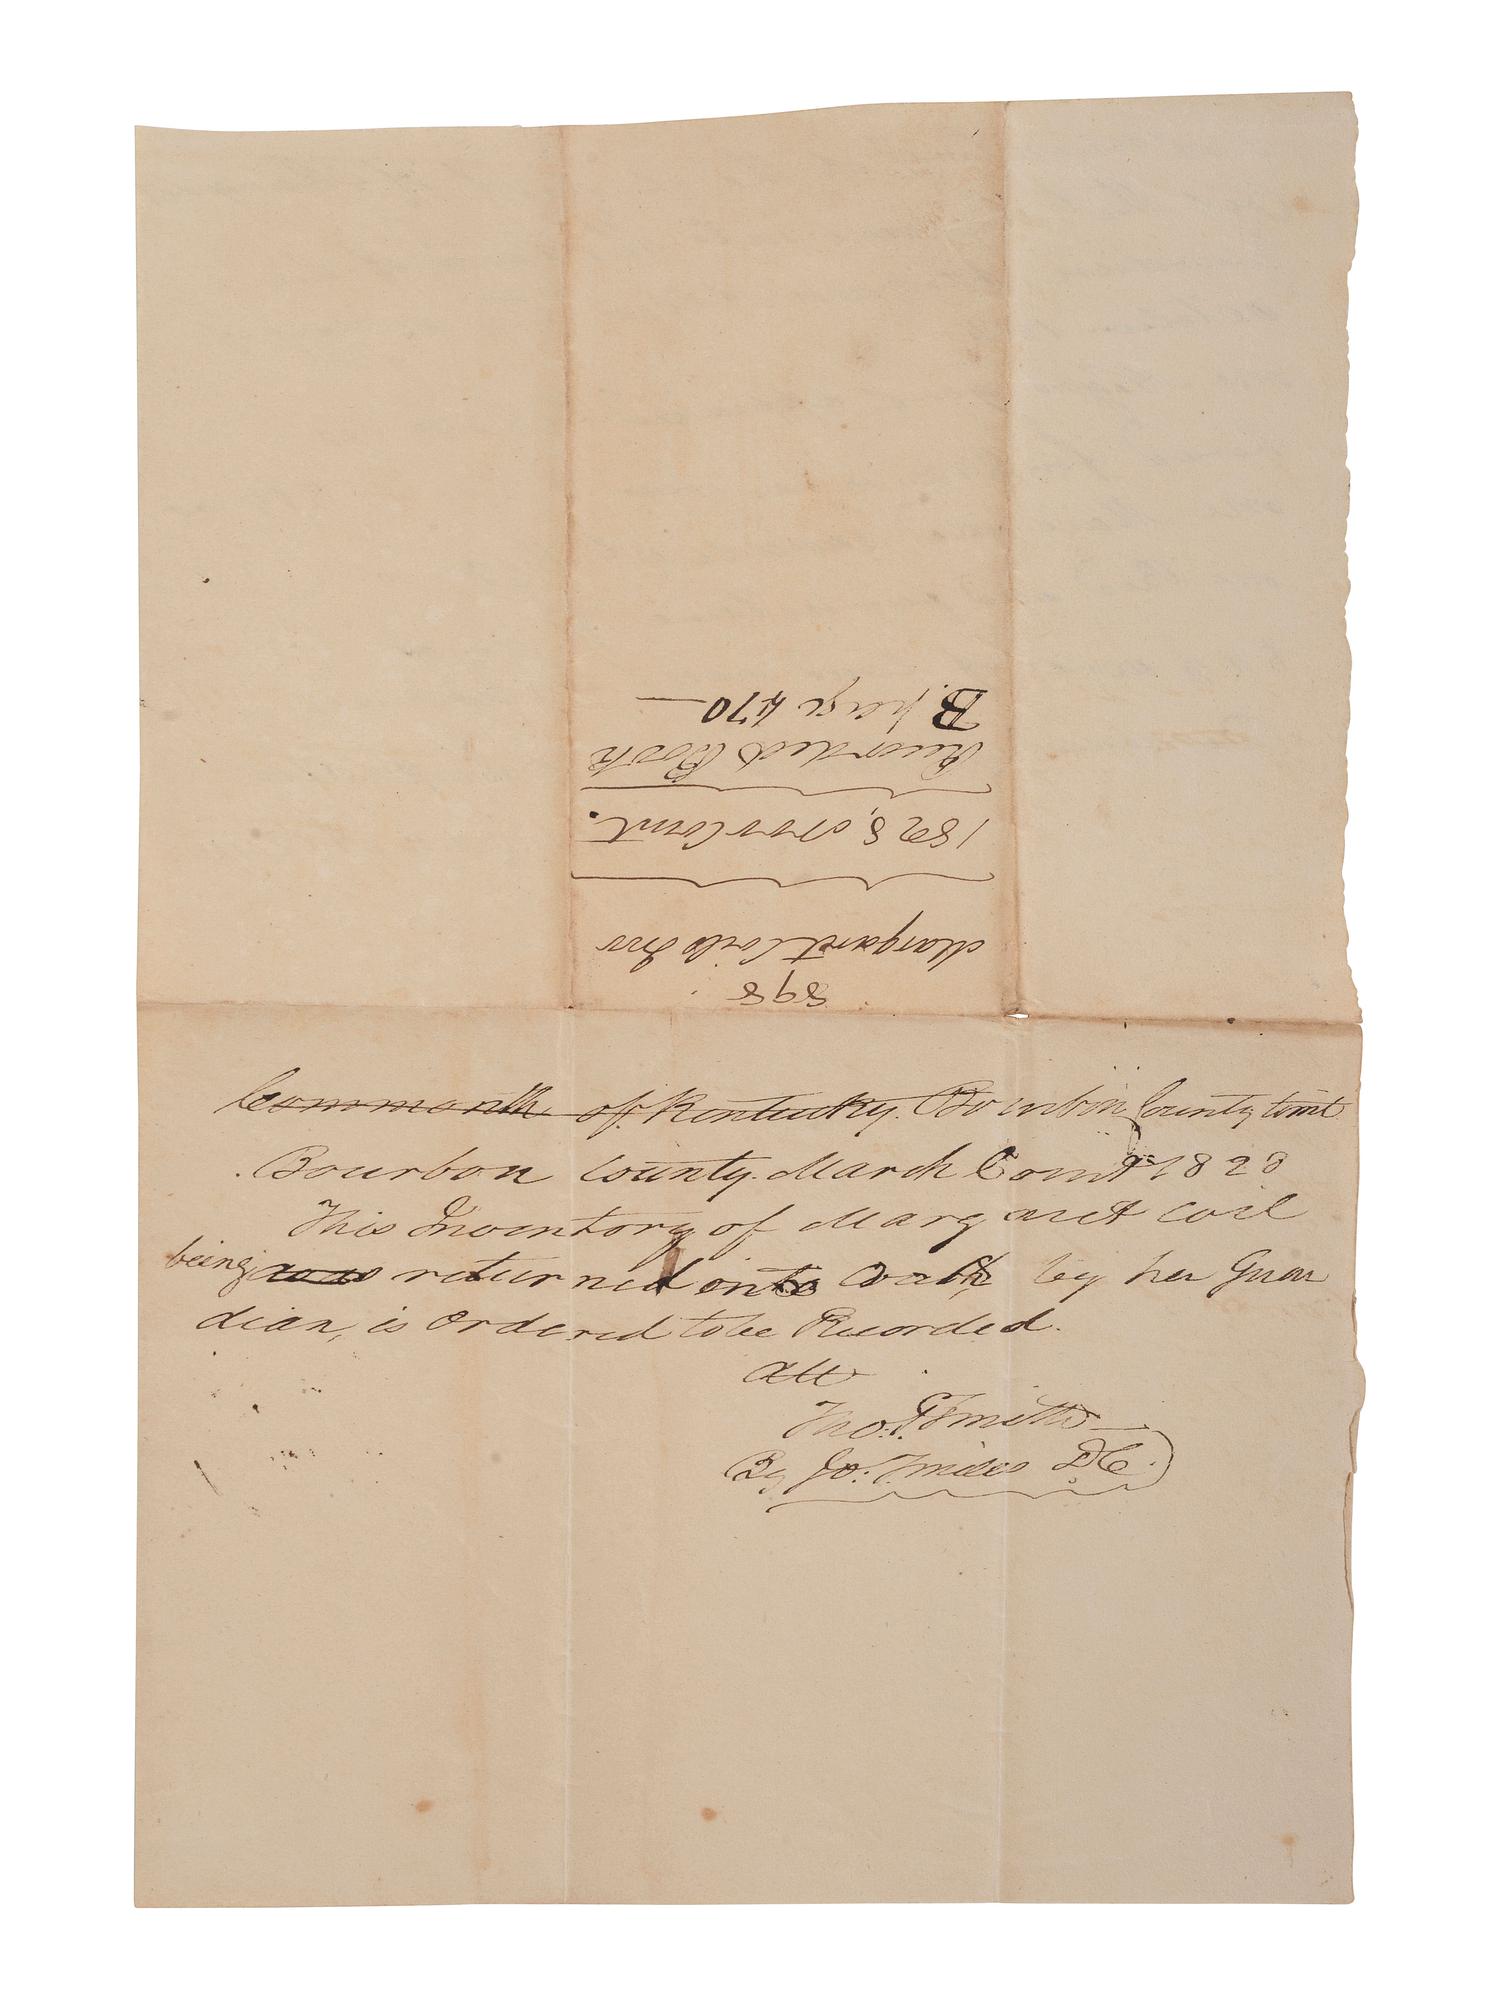 898
Margaret Coils Inv
1828, Nov Court.
Recorded Book
B. page 470
Commonth of Kentucky Bourbon County Court
Bourbon County March Court 1828
This Inventory of Margaret Coil
being was returned onto Oath, by her Guar
dian, is ordered to be Recorded.
Att
Tho: P. Smith
By Jo: Smith DC.